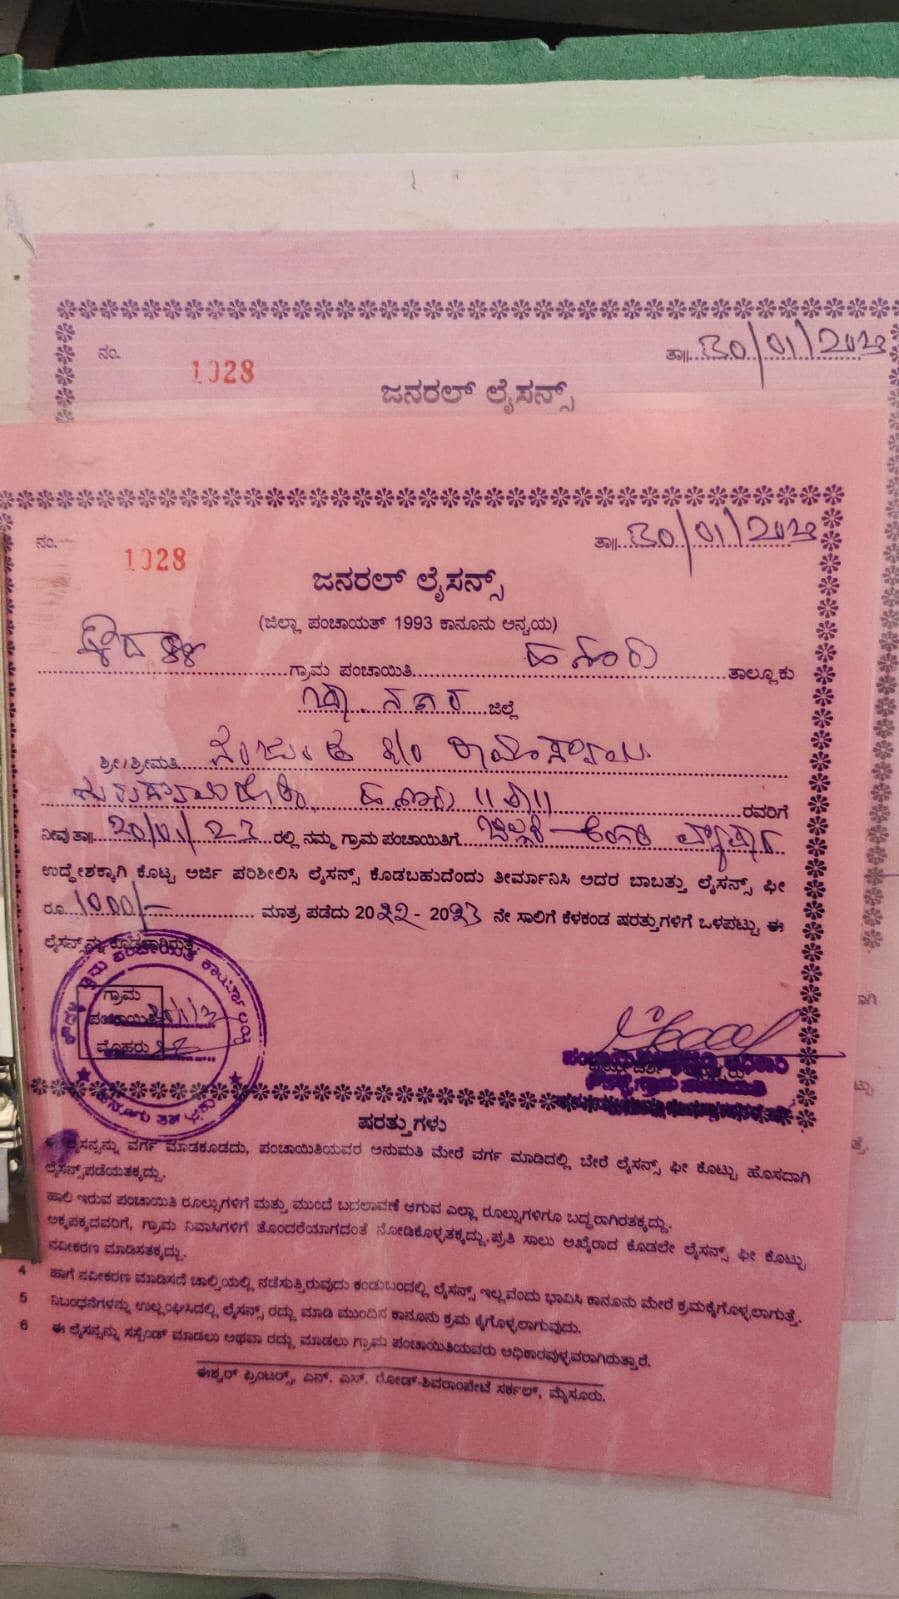 ನಂ. 1028 ತಾ॥ 30/01/2023
ಜನರಲ್ ಲೈಸನ್ಸ್
ನಂ. 1028 ತಾ॥ 30/01/2023
ಜನರಲ್ ಲೈಸನ್ಸ್
(ಜಿಲ್ಲಾ ಪಂಚಾಯತ್ 1993 ಕಾನೂನು ಅನ್ವಯ)
ಗ್ರಾಮ ಪಂಚಾಯಿತಿ ಹನೂರು ತಾಲ್ಲೂಕು
ಚಾ.ನಗರ ಜಿಲ್ಲೆ
ಶ್ರೀ/ಶ್ರೀಮತಿ
ಹನೂರು ॥ತಾ॥ ರವರಿಗೆ
ನೀವು ತಾ॥ 20/01/23 ರಲ್ಲಿ ನಮ್ಮ ಗ್ರಾಮ ಪಂಚಾಯಿತಿಗೆ ಚಿಲ್ಲರೆ ಅಂಗಡಿ ವ್ಯಾಪಾರ
ಉದ್ದೇಶಕ್ಕಾಗಿ ಕೊಟ್ಟ ಅರ್ಜಿ ಪರಿಶೀಲಿಸಿ ಲೈಸನ್ಸ್ ಕೊಡಬಹುದೆಂದು ತೀರ್ಮಾನಿಸಿ ಅದರ ಬಾಬತ್ತು ಲೈಸನ್ಸ್ ಫೀ
ರೂ. 1000/- ಮಾತ್ರ ಪಡೆದು 2022- 2023 ನೇ ಸಾಲಿಗೆ ಕೆಳಕಂಡ ಷರತ್ತುಗಳಿಗೆ ಒಳಪಟ್ಟು ಈ
ಲೈಸನ್ಸ್‌ನ್ನು ಕೊಡಲಾಗಿರುತ್ತೆ.
ಗ್ರಾಮ ಪಂಚಾಯತಿ ಕಾರ್ಯಾಲಯ
ಗ್ರಾಮ
ಪಂಚಾಯಿತಿ
ಮೊಹರು
ಹನೂರು ತಾಲ್ಲೂಕು
ಷರತ್ತುಗಳು
ಲೈಸನ್ಸನ್ನು ವರ್ಗ ಮಾಡಕೂಡದು, ಪಂಚಾಯಿತಿಯವರ ಅನುಮತಿ ಮೇರೆ ವರ್ಗ ಮಾಡಿದಲ್ಲಿ ಬೇರೆ ಲೈಸನ್ಸ್ ಫೀ ಕೊಟ್ಟು ಹೊಸದಾಗಿ
ಲೈಸನ್ಸ್‌ಪಡೆಯತಕ್ಕದ್ದು.
ಹಾಲಿ ಇರುವ ಪಂಚಾಯಿತಿ ರೂಲ್ಸುಗಳಿಗೆ ಮತ್ತು ಮುಂದೆ ಬದಲಾವಣೆ ಆಗುವ ಎಲ್ಲಾ ರೂಲ್ಸುಗಳಿಗೂ ಬದ್ಧರಾಗಿರತಕ್ಕದ್ದು.
ಅಕ್ಕಪಕ್ಕದವರಿಗೆ, ಗ್ರಾಮ ನಿವಾಸಿಗಳಿಗೆ ತೊಂದರೆಯಾಗದಂತೆ ನೋಡಿಕೊಳ್ಳತಕ್ಕದ್ದು.ಪ್ರತಿ ಸಾಲು ಅಖೈರಾದ ಕೂಡಲೇ ಲೈಸೆನ್ಸ್ ಫೀ ಕೊಟ್ಟು
ನವೀಕರಣ ಮಾಡಿಸತಕ್ಕದ್ದು.
4 ಹಾಗೆ ನವೀಕರಣ ಮಾಡಿಸದೆ ಚಾಲ್ತಿಯಲ್ಲಿ ನಡೆಸುತ್ತಿರುವುದು ಕಂಡುಬಂದಲ್ಲಿ ಲೈಸೆನ್ಸ್ ಇಲ್ಲವೆಂದು ಭಾವಿಸಿ ಕಾನೂನು ಮೇರೆ ಕ್ರಮಕೈಗೊಳ್ಳಲಾಗುತ್ತೆ.
5 ನಿಬಂಧನೆಗಳನ್ನು ಉಲ್ಲಂಘಿಸಿದಲ್ಲಿ ಲೈಸೆನ್ಸ್ ರದ್ದು ಮಾಡಿ ಮುಂದಿನ ಕಾನೂನು ಕ್ರಮ ಕೈಗೊಳ್ಳಲಾಗುವುದು.
6 ಈ ಲೈಸನ್ಸನ್ನು ಸಸ್ಪೆಂಡ್ ಮಾಡಲು ಅಥವಾ ರದ್ದು ಮಾಡಲು ಗ್ರಾಮ ಪಂಚಾಯಿತಿಯವರು ಅಧಿಕಾರವುಳ್ಳವರಾಗಿರುತ್ತಾರೆ.
ಈಶ್ವರ್ ಪ್ರಿಂಟರ್ಸ್, ಎನ್. ಎಸ್. ರೋಡ್-ಶಿವರಾಂಪೇಟೆ ಸರ್ಕಲ್, ಮೈಸೂರು.